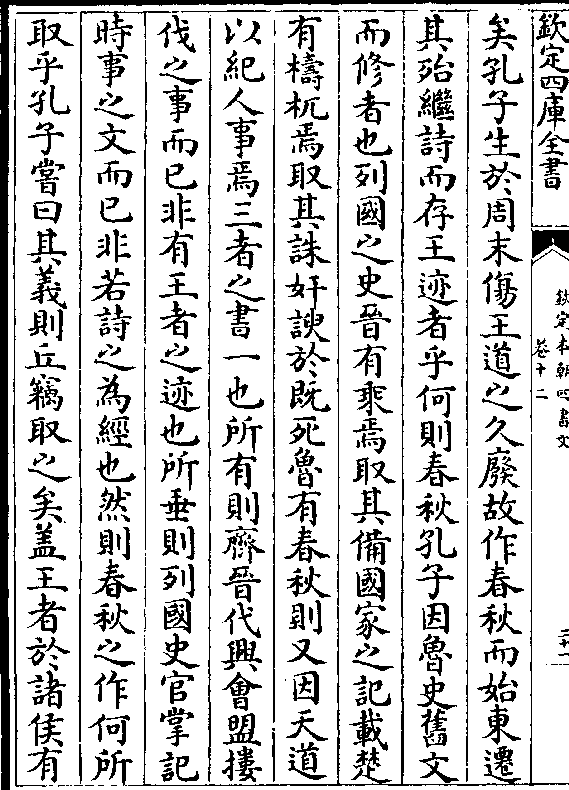 欽定四庫全書
欽定本朝四書文
卷十二
二十一
矣孔子生於周末傷王道之久廢故作春秋而始東遷
其殆繼詩而存王迹者乎何則春秋孔子因魯史舊文
而修者也列國之史晉有乘焉取其備國家之記載楚
有檮杌焉取其誅奸諛於既死魯有春秋則又因天道
以紀人事焉三者之書一也所有則齊晉代興會盟摟
伐之事而已非有王者之迹也所垂則列國史官掌記
時事之文而已非若詩之為經也然則春秋之作何所
取乎孔子嘗曰其義則丘竊取之矣盖王者於諸侯有